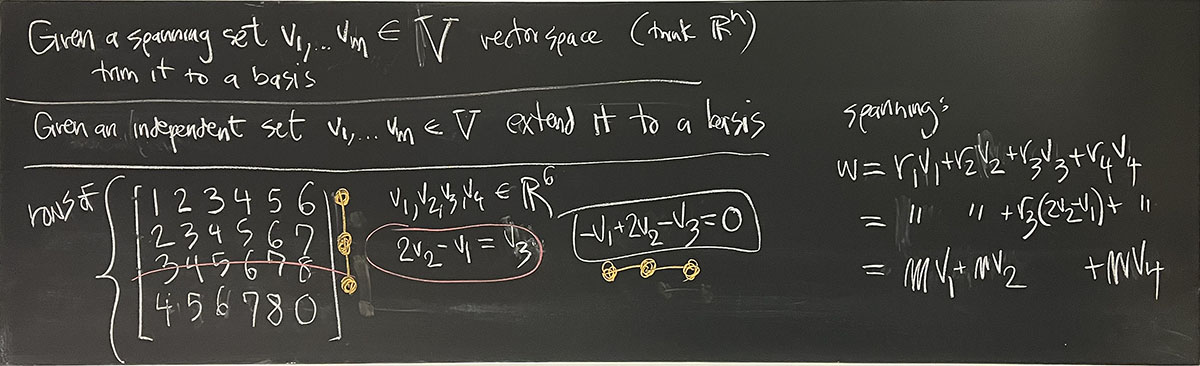 Given a spanning set v₁,... vₘ ∈ V vector space (think ℝⁿ)
trim it to a basis
Given an independent set v₁,... vₘ ∈ V extend it to a basis
rows of
1 2 3 4 5 6
2 3 4 5 6 7
3 4 5 6 7 8
4 5 6 7 8 0
v₁,v₂,v₃,v₄ ∈ ℝ⁶
2v₂ - v₁ = v₃
-v₁+2v₂-v₃=0
spanning:
w = r₁v₁+r₂v₂+r₃v₃+r₄v₄
= " " +r₃(2v₂-v₁)+ "
= v₁+ v₂ + v₄